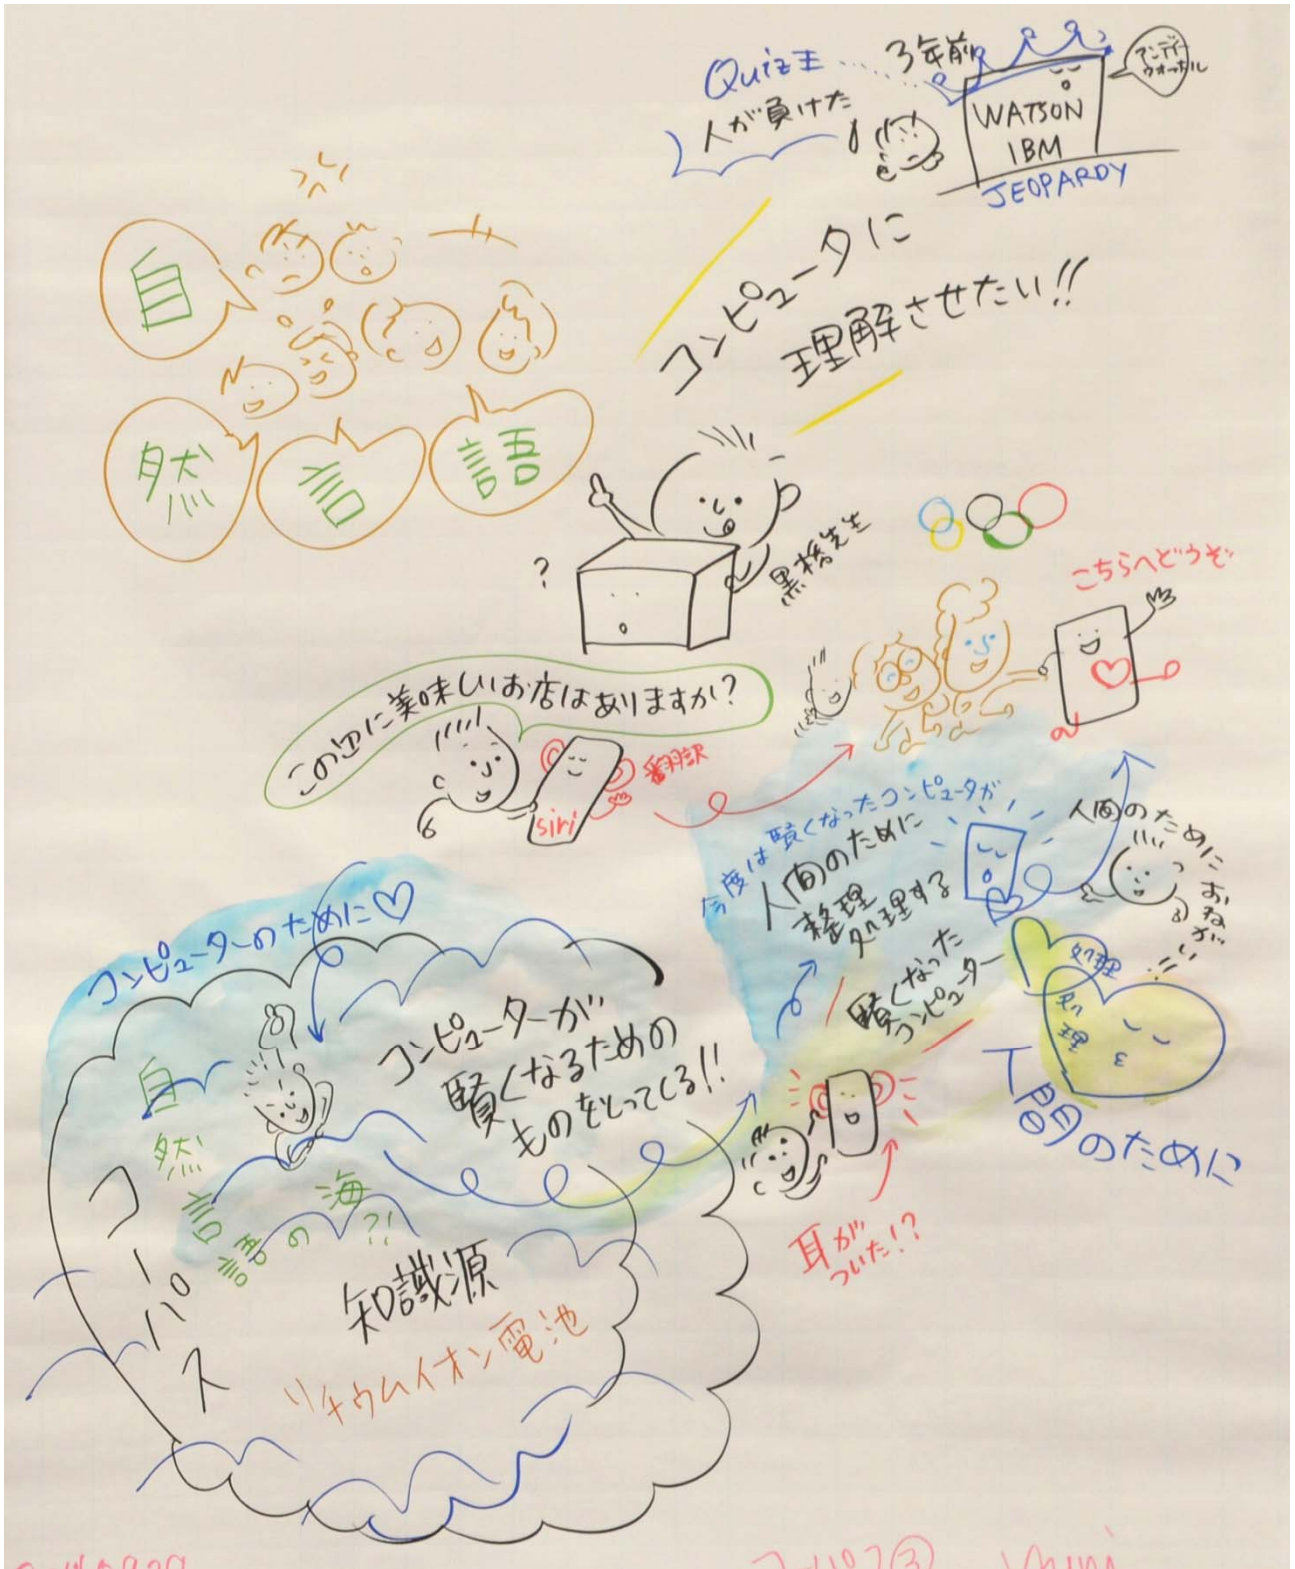 Quiz王
3年前
人が負けた
アンディー
ウォーホル
WATSON
IBM
JEOPARDY
自
然
言
語
コンピュータに
理解させたい!!
?
黒橋先生
こちらへどうぞ
この辺に美味しいお店はありますか?
siri
翻訳
今度は賢くなったコンピュータが
人間のために
整理
処理する
人間のためにおねがい!!
賢くなった
コンピューター
処理
処理
人間のために
コンピューターのために♡
コンピューターが
賢くなるための
ものをとってくる!!
自然言語の海?!
コーパス
知識源
リチウムイオン電池
耳が
ついた!?